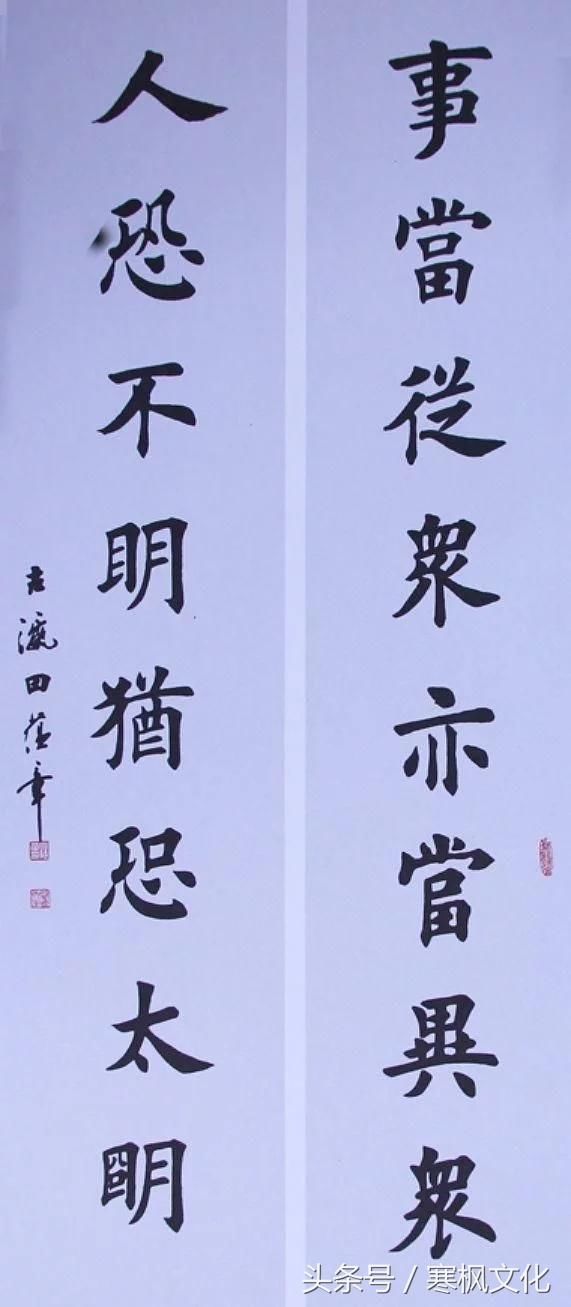 事當從衆亦當異衆
人恐不明猶恐太明
古瀛田蕴章
头条号 / 寒枫文化